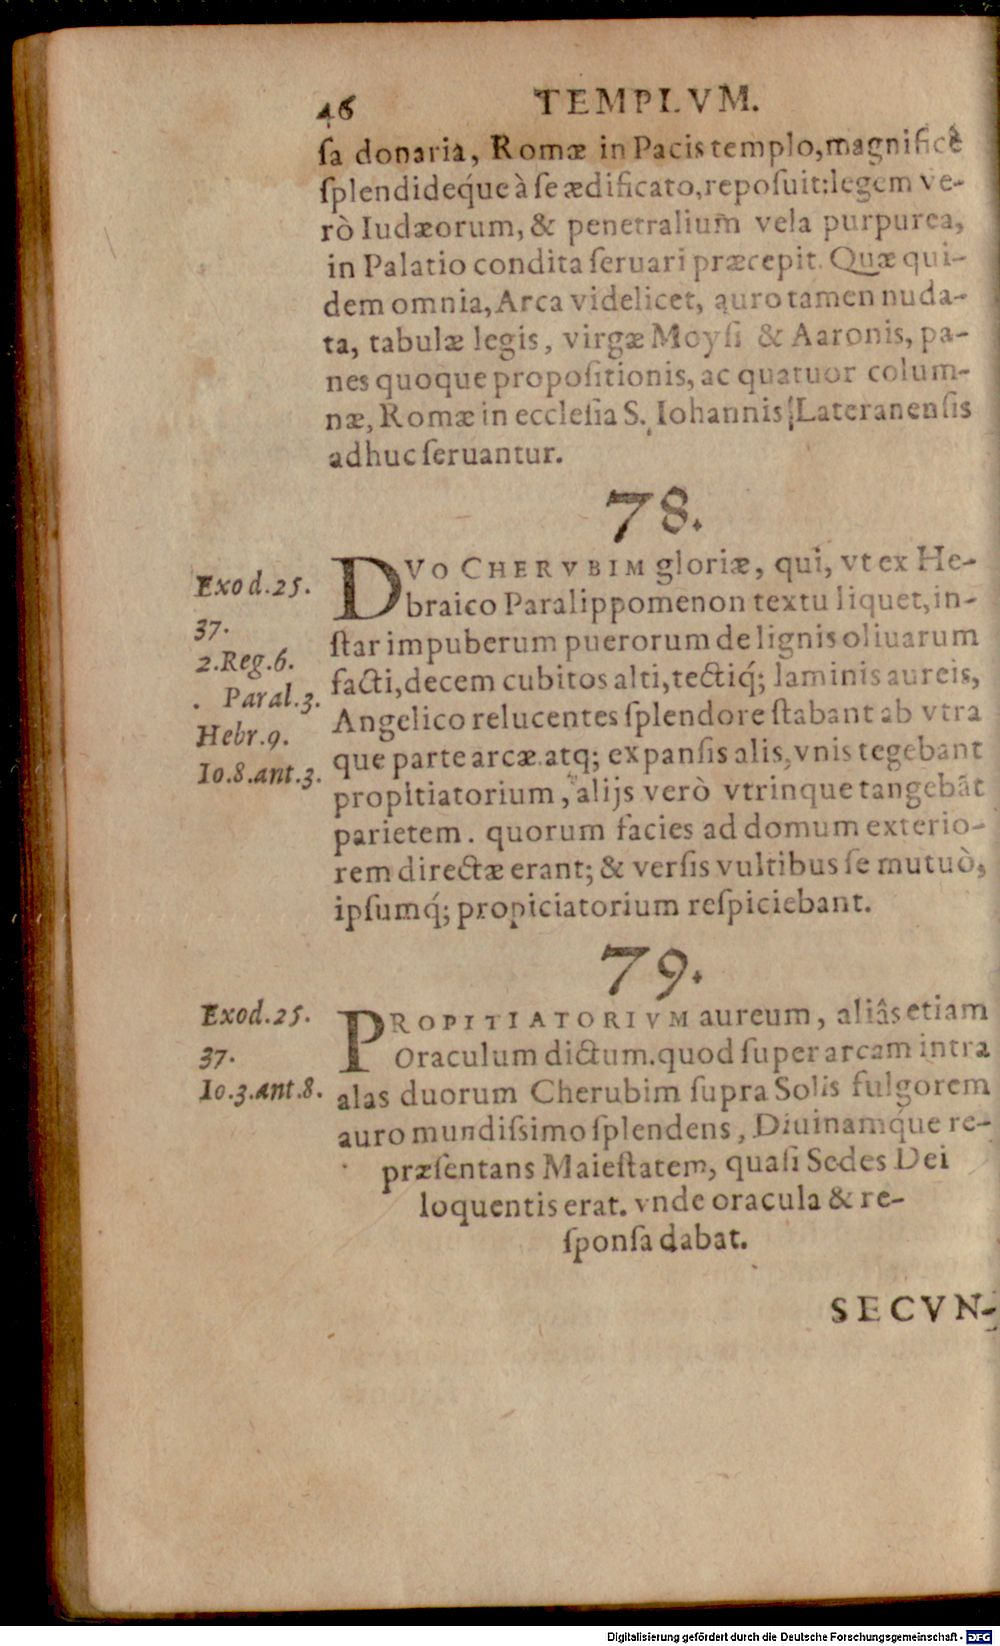 46 TEMPLVM.
ſa donaria, Romæ in Pacis templo, magnificè
ſplendideq́ue à ſe ædificato, repoſuit: legem ve-
rò Iudæorum, & penetralium vela purpurea,
in Palatio condita ſeruari præcepit. Quæ qui-
dem omnia, Arca videlicet, auro tamen nuda-
ta, tabulæ legis, virgæ Moyſi & Aaronis, pa-
nes quoque propoſitionis, ac quatuor colum-
næ, Romæ in eccleſia S. Iohannis Lateranenſis
adhuc ſeruantur.
78.
Exod.25.
37.
2.Reg.6.
. Paral.3.
Hebr.9.
Io.8.ant.3.
DVO CHERVBIM gloriæ, qui, vt ex He-
braico Paralippomenon textu liquet, in-
ſtar impuberum puerorum de lignis oliuarum
facti, decem cubitos alti, tectiq́; laminis aureis,
Angelico relucentes ſplendore ſtabant ab vtra
que parte arcæ. atq; expanſis alis, vnis tegebant
propitiatorium, alijs verò vtrinque tangebãt
parietem. quorum facies ad domum exterio-
rem directæ erant; & verſis vultibus ſe mutuò,
ipſumq́; propiciatorium reſpiciebant.
79.
Exod.25.
37.
Io.3.ant.8.
PROPITIATORIVM aureum, aliâs etiam
Oraculum dictum. quod ſuper arcam intra
alas duorum Cherubim ſupra Solis fulgorem
auro mundiſsimo ſplendens, Diuinamq́ue re-
præſentans Maieſtatem, quaſi Sedes Dei
loquentis erat. vnde oracula & re-
ſponſa dabat.
SECVN-
Digitalisierung gefördert durch die Deutsche Forschungsgemeinschaft - DFG